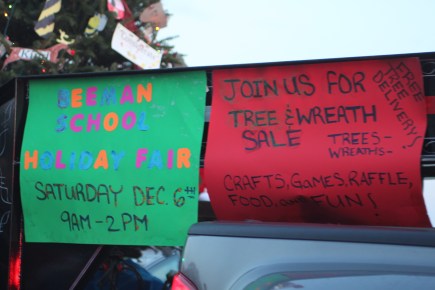 BEEMAN
SCHOOL
HOLIDAY FAIR
SATURDAY DEC. 6TH
9AM-2PM
JOIN US FOR
TREE & WREATH
SALE
TREES-
WREATHS-
FREE
TREE
DELIVERY!
CRAFTS, GAMES, RAFFLE,
FOOD, AND FUN!